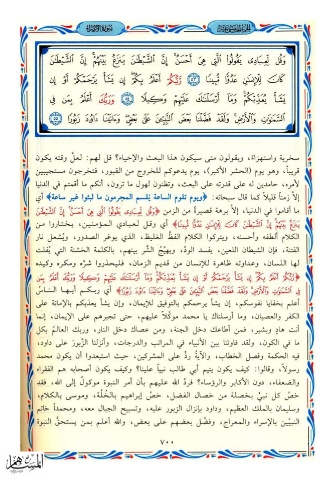 وَقُل لِّعِبَادِى يَقُولُوا۟ ٱلَّتِى هِىَ أَحْسَنُ إِنَّ ٱلشَّيْطَـٰنَ يَنزَغُ بَيْنَهُمْ إِنَّ ٱلشَّيْطَـٰنَ
كَانَ لِلْإِنسَـٰنِ عَدُوًّا مُّبِينًا ٥٣ رَّبُّكُمْ أَعْلَمُ بِكُمْ إِن يَشَأْ يَرْحَمْكُمْ أَوْ إِن
يَشَأْ يُعَذِّبْكُمْ وَمَآ أَرْسَلْنَـٰكَ عَلَيْهِمْ وَكِيلًا ٥٤ وَرَبُّكَ أَعْلَمُ بِمَن فِى
ٱلسَّمَـٰوَٰتِ وَٱلْأَرْضِ وَلَقَدْ فَضَّلْنَا بَعْضَ ٱلنَّبِيِّـۧنَ عَلَىٰ بَعْضٍ وَءَاتَيْنَا دَاوُۥدَ زَبُورًا ٥٥
سخرية واستهزاء، ويقولون متى سيكون هذا البعث والإحياء؟ قل لهم: لعلّ وقته يكون
قريباً، وهو يوم (الحشر الأكبر)، يوم يدعوكم للخروج من القبور، فتخرجون مستجيبين
لأمره، حامدين له على قدرته على البعث، وتظنون لهول ما ترون، أنكم ما أقمتم في الدنيا
إلا زمناً قليلاً كما قال سبحانه: ﴿ويوم تقوم الساعة يقسم المجرمون ما لبثوا غير ساعة﴾ أي
ما أقاموا في الدنيا، إلّا برهة قصيرة من الزمن ﴿وَقُل لِّعِبَادِى يَقُولُوا۟ ٱلَّتِى هِىَ أَحْسَنُ إِنَّ ٱلشَّيْطَـٰنَ
يَنزَغُ بَيْنَهُمْ إِنَّ ٱلشَّيْطَـٰنَ كَانَ لِلْإِنسَـٰنِ عَدُوًّا مُّبِينًا﴾ أي وقل لعبادي المؤمنين، يختاروا من
الكلام ألطفه وأحسنه، ويتركوا الكلام الفظّ الغليظ، الذي يوغر الصدور، ويُشعل نار
الفتنة، فإنّ الشيطان اللعين، يفسد الودّ، ويهيّج الشر بينهم، بالكلمة الخشنة التي يُفلت
لها اللسان، وعداوته ظاهرة للإنسان من قديم الزمان، فليحذروا شرّه ومكره وكيده
﴿رَّبُّكُمْ أَعْلَمُ بِكُمْ إِن يَشَأْ يَرْحَمْكُمْ أَوْ إِن يَشَأْ يُعَذِّبْكُمْ وَمَآ أَرْسَلْنَـٰكَ عَلَيْهِمْ وَكِيلًا وَرَبُّكَ أَعْلَمُ بِمَن
فِى ٱلسَّمَـٰوَٰتِ وَٱلْأَرْضِ وَلَقَدْ فَضَّلْنَا بَعْضَ ٱلنَّبِيِّـۧنَ عَلَىٰ بَعْضٍ وَءَاتَيْنَا دَاوُۥدَ زَبُورًا﴾ أي ربكم أيها الناس
أعلم بخفايا نفوسكم، إن يشأ يرحمكم بالتوفيق للإيمان، وإن يشأ يعذبكم بالإماتة على
الكفر والعصيان، وما أرسلناك يا محمد موكلاً عليهم، حتى تجبرهم على الإيمان، إنما
أنت هادٍ وبشير، فمن أطاعك دخل الجنة، ومن عصاك دخل النار، وربك العالم بكل
ما في الكون، ولقد فاوتنا بين الأنبياء في المراتب والدرجات، وأنزلنا الزّبور على داود،
فيه الحكمة وفصل الخطاب، والآية ردٌّ على المشركين، حيث استبعدوا أن يكون محمد
رسولاً، وقالوا: كيف يكون يتيم أبي طالب نبياً علينا؟ وكيف يكون أصحابه هم الفقراء
والضعفاء، دون الأكابر والرؤساء؟ فردّ الله عليهم بأن أمر النبوة موكولٌ إلى الله، فقد
خصّ كل نبيّ بخصلة من خصال الفضل، خصّ إبراهيم بالخُلّة، وموسى بالكلام،
وسليمان بالملك العظيم، وداود بإنزال الزبور عليه، وتسبيح الجبال معه، ومحمداً خاتم
النبيّين بالإسراء والمعراج، وفضّل بعضهم على بعض، والله أعلم بمن يستحقّ النبوة
٧٠٠